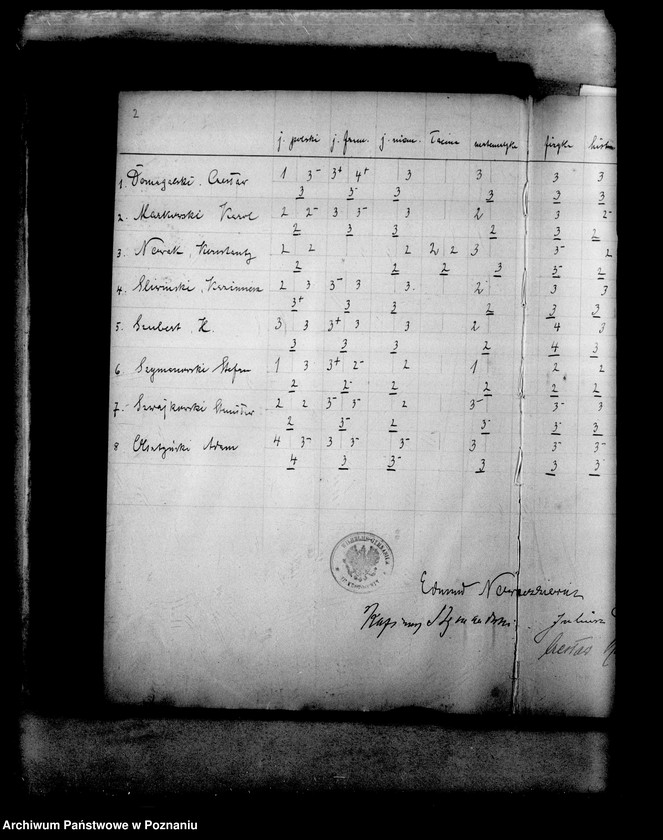 2
j. polski j. franc. j. niem. łacina matematyka fizyka histor
1. Domagalski Czesław 1 3- 3+ 4+ 3 3 3 3
3 3- 3 3 3 3
2. Markowski Karol 2 2- 3 3- 3 2 3 2-
2 3 3 2 3 2
3. Nowak, Konstanty 2 2 2 2 2 3 3- 2
2 2 2 3 3- 2
4. Śliwiński, Kazimierz 2 3 3- 3 3. 2- 3 3
3+ 3 3 2 3 3
5. Szubert, K. 3 3 3+ 3 3 2 4 3
3 3 3 2 4 3
6 Szymanowski Stefan 1 3 3+ 2- 2 1 2 2
2 2- 2 2 2 2
7. Szrajkowski 2 2 3- 3- 2 3- 3- 3
2 3- 2 3- 3- 3
8 Adam 4 3- 3 3- 3- 3 3- 3-
4 3 3- 3 3 3-
Edmund
Juliusz
Czesław
Archiwum Państwowe w Poznaniu